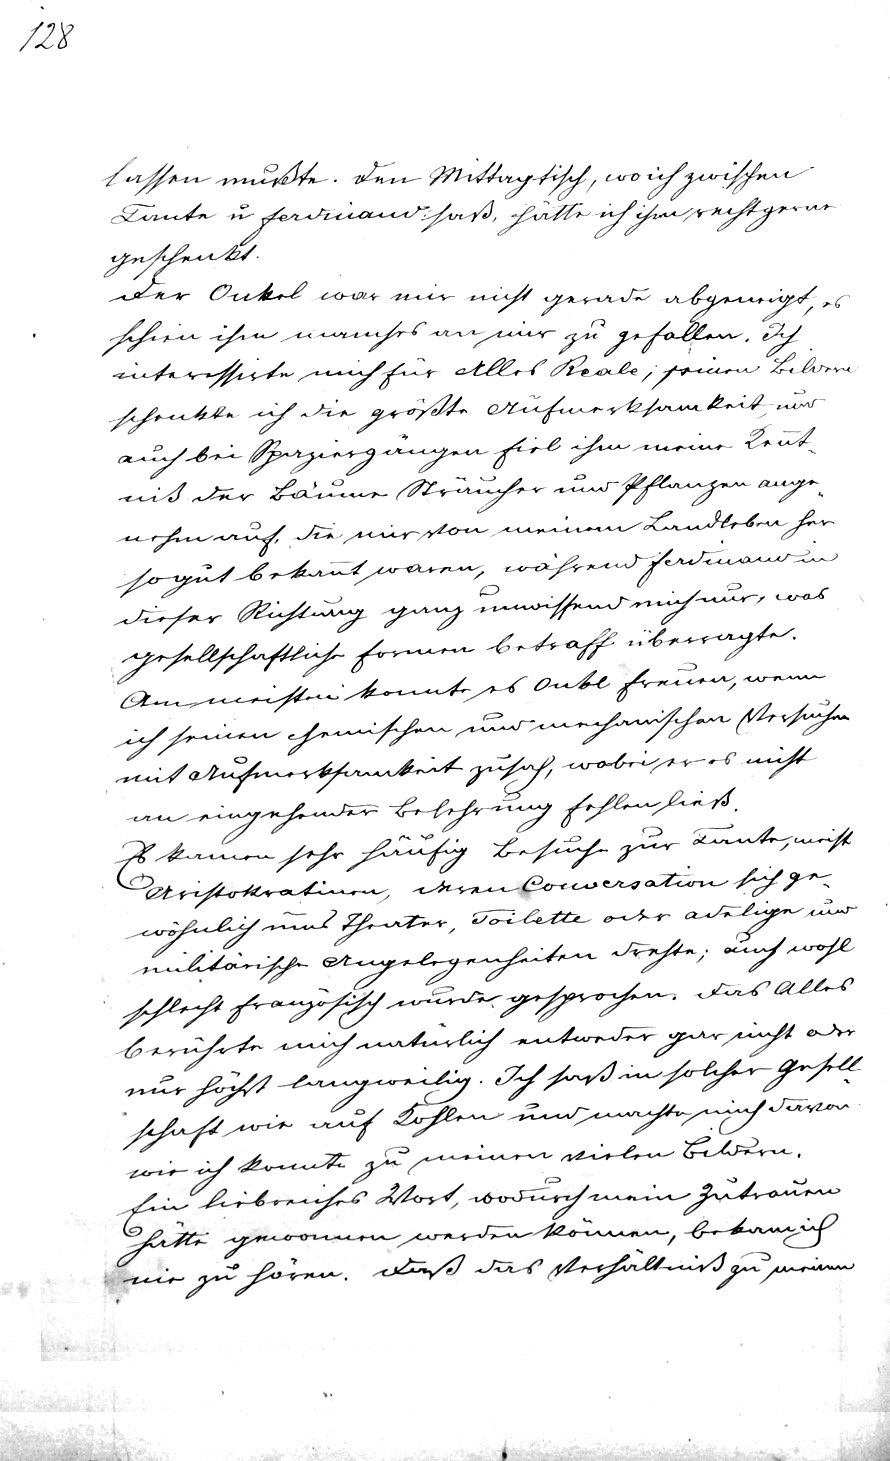 128
lassen mußte. Den Mittagtisch, wo ich zwischen
Tante u Ferdinand saß, hätte ich ihm recht gerne
geschenkt.
Der Onkel war mir nicht gerade abgeneigt, es
schien ihm manches an mir zu gefallen. Ich
interessirte mich für Alles Reale; seinen Bildern
schenkte ich die größte Aufmerksamkeit und
auch bei Spaziergängen fiel ihm meine Kent̄-
niß der Bäume Sträucher und Pflanzen ange-
nehm auf, die mir von meinem Landleben her
so gut bekan̄t waren, während Ferdinand in
dieser Richtung ganz unwissend mich nur, was
gesellschaftliche Formen betraff überragte.
Am meisten konnte es Onkl freuen, wenn
ich seinen chemischen und mechanischen Versuchen
mit Aufmerksamkeit zusah, wobei er es nicht
an eingehender Belehrung fehlen ließ.
Es kamen sehr häufig Besuche zur Tante, meist
Aristokratinen, deren Conversation sich ge-
wöhnlich ums Theater, Toilette oder adelige und
militärische Angelegenheiten drehte; auch wohl
schlecht französisch wurde gesprochen. Das Alles
berührte mich natürlich entweder gar nicht oder
nur höchst langweilig. Ich saß in solcher Gesell-
schaft wie auf Kohlen und machte mich davon
wie ich konnte zu meinen vielen Bildern.
Ein liebreiches Wort, wodurch mein Zutrauen
hätte gewonnen werden können, bekam ich
nie zu hören. Daß das Verhältniß zu meinem